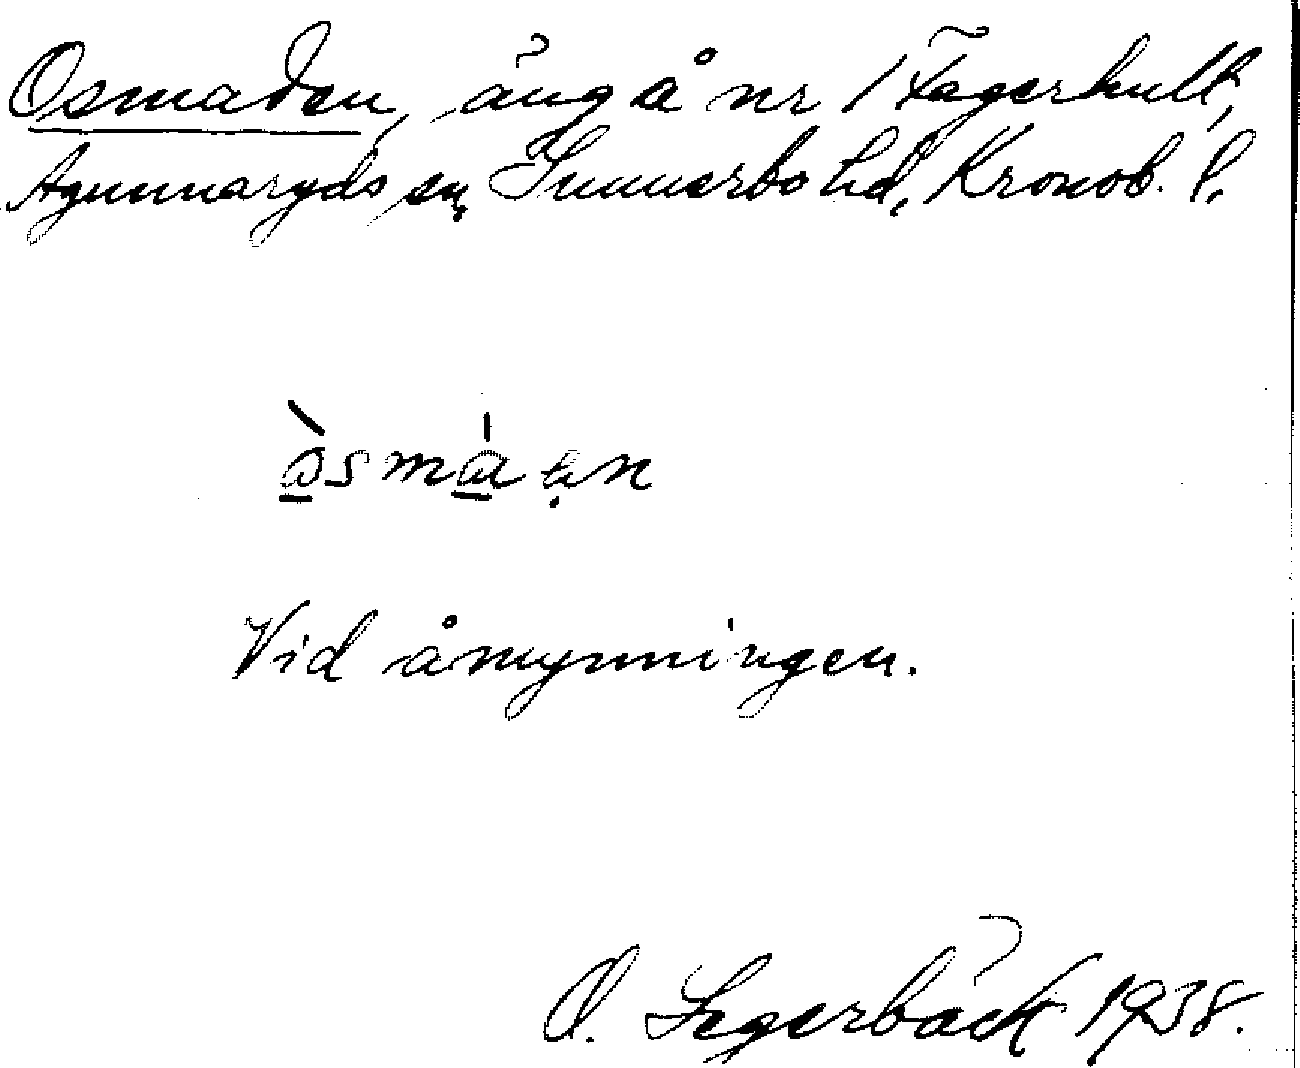 Osmaden, äng å nr 1 Fagerhult,
Agunnaryds sn, Sunnerbo hd, Kronob. l.
Vid åmynningen.
O. Segerbäck 1938.